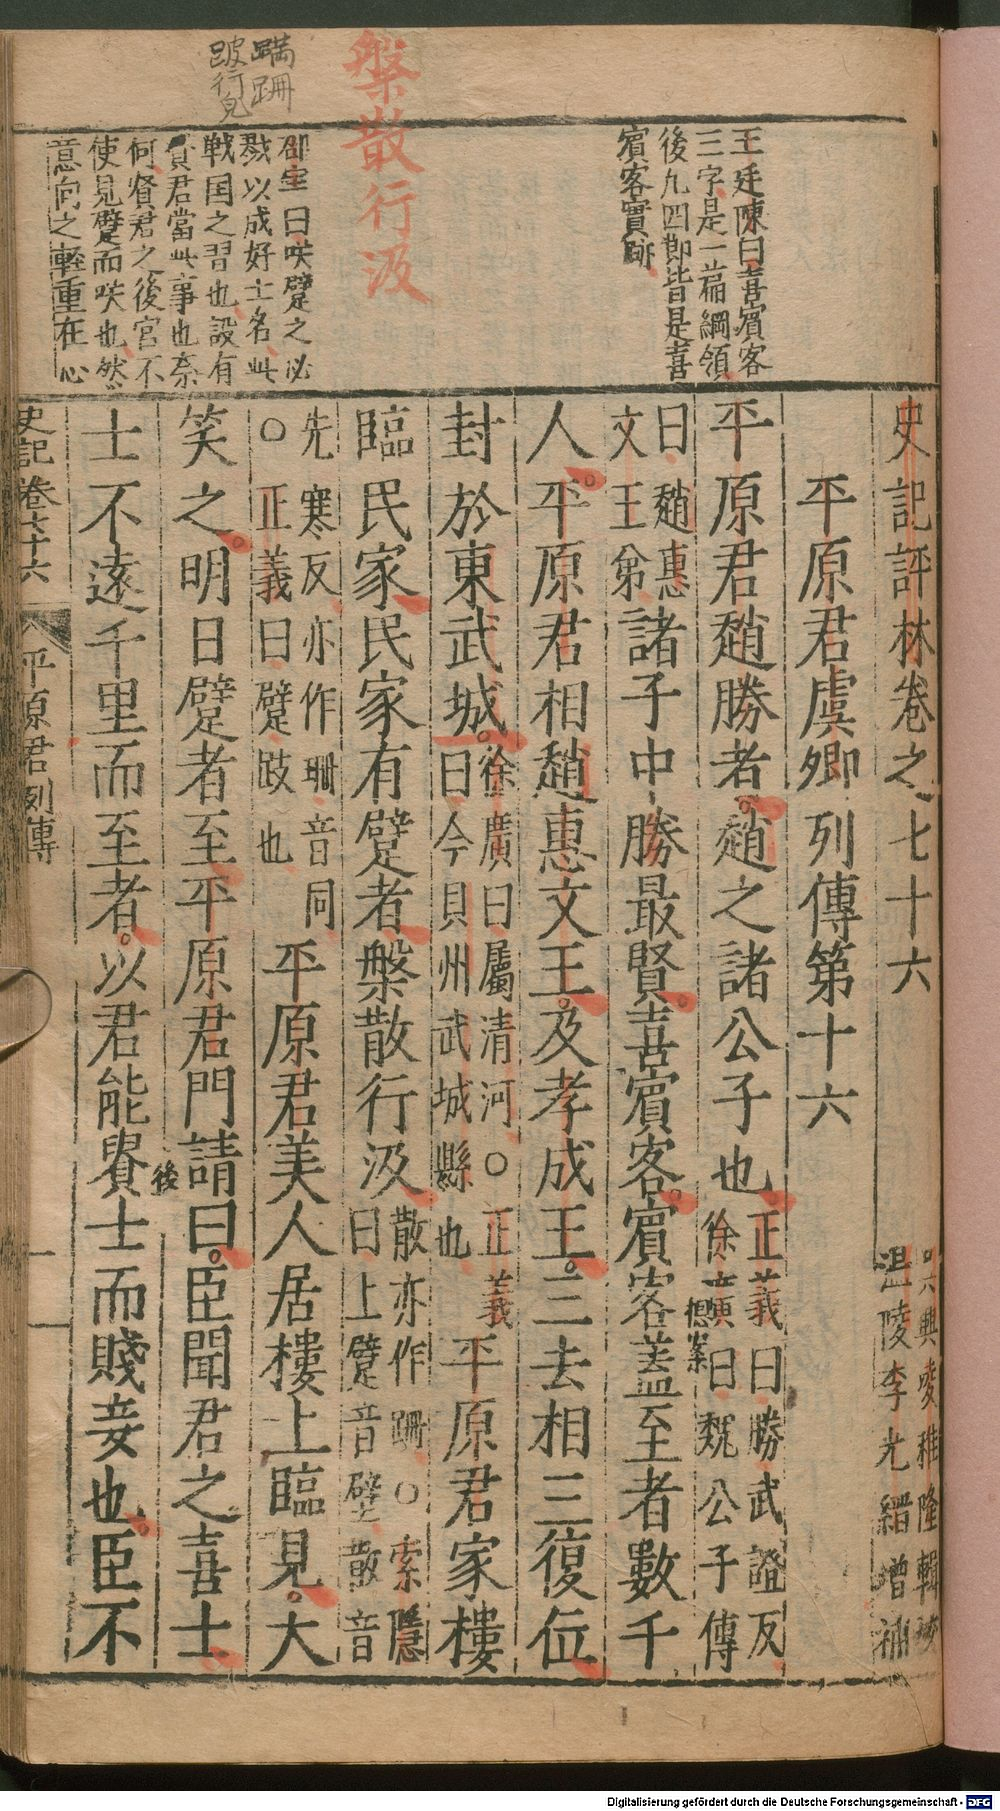 史記評林卷之七十六
吳興凌稚隆輯校
溫陵李光縉增補
平原君虞卿列傳第十六
平原君趙勝者趙之諸公子也
正義曰勝式證反
徐廣曰魏公子傳
櫽案
曰趙惠
文王弟
諸子中勝最賢喜賓客賓客蓋至者數千
人平原君相趙惠文王及孝成王三去相三復位
封於東武城
徐廣曰屬清河○正義
曰今貝州武城縣也
平原君家樓
臨民家民家有躄者槃散行汲
散亦作跚○索隱
曰上躄音壁散音
先寒反亦作珊音同
○正義曰躄跛也
平原君美人居樓上臨見大
笑之明日躄者至平原君門請曰臣聞君之喜士
後
士不遠千里而至者以君能貴士而賤妾也臣不
史記卷七十六
平原君列傳
一
王廷陳曰喜賓客
三字是一篇綱領
後九四節皆是喜
賓客實跡
槃散行汲
邵宝曰咲躄之必
戮以成好士名此
戦国之習也設有
賢君當此事也奈
何賢君之後宮不
使見躄而咲也然
意向之輕重在心
蹣跚
跛行皃
Digitalisierung gefördert durch die Deutsche Forschungsgemeinschaft - DFG